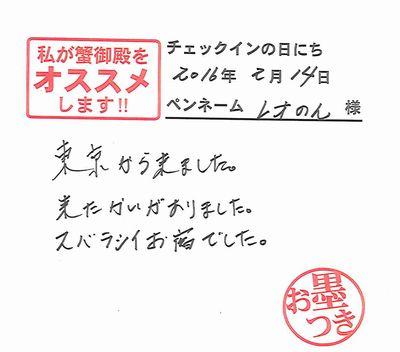 私が蟹御殿を
オススメ
します!!
チェックインの日にち
2016年 2月 14日
ペンネーム レオのん 様
東京から来ました。
来たかいがありました。
スバラシイお宿でした。
お墨つき